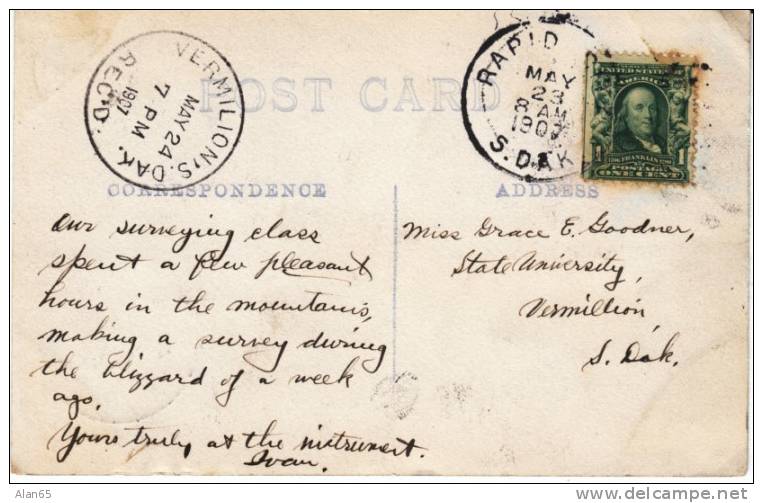 VERMILION, S. DAK.
MAY 24
7 PM
1907
REC'D.
RAPID
MAY
23
8 AM
1907
S. DAK
UNITED STATES OF
AMERICA
1 FRANKLIN 1
POSTAGE
ONE CENT
POST CARD
CORRESPONDENCE
ADDRESS
Our surveying class
spent a few pleasant
hours in the mountains,
making a survey during
the blizzard of a week
ago.
Yours truly at the instrument.
Ivan.
Miss Grace E. Goodner,
State University,
Vermillion,
S. Dak.
Alan65
delcampe.net